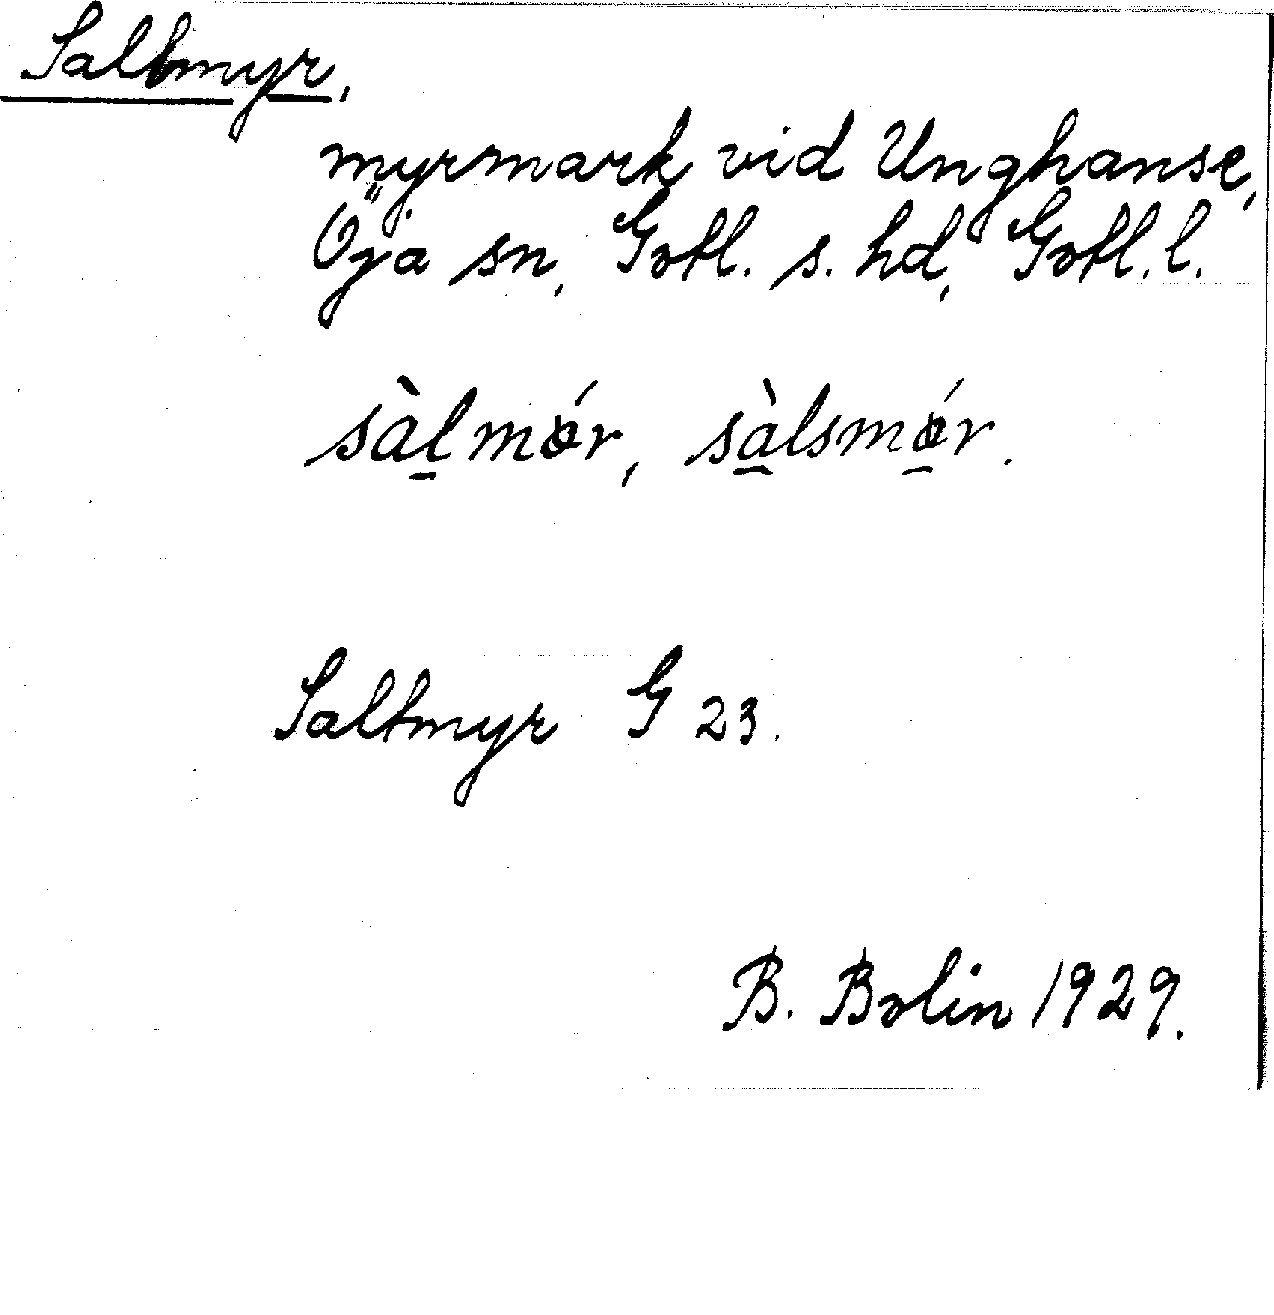 Saltmyr,
myrmark vid Unghanse,
Öja sn, Gotl. s. hd, Gotl. l.
sàl̲mǿr, sà̲lsmǿ̲r.
Saltmyr G 23.
B. Bolin 1929.